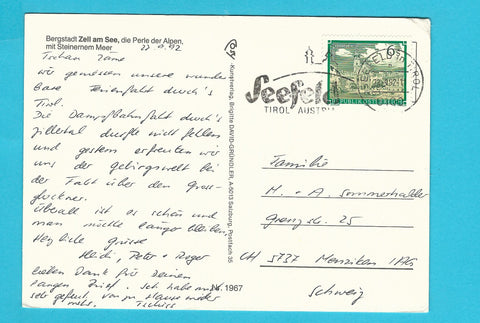 Bergstadt Zell am See, die Perle der Alpen,
mit Steinernem Meer
wir geniessen unsere wunder
bare Ferienfahrt durch's
Tirol.
Die Dampfbahnfahrt durch's
Zillertal durfte nicht fehlen
und gestern erfreuten wir
uns der Gebirgswelt bei
der Fahrt über den Gross-
glockner.
Überall ist es schön und
man möchte länger bleiben.
Herzliche Grüsse
Heidi, Peter + Roger
lieben Dank für Deinen
langen Brief. Ich habe mich
sehr gefreut von zu Hause
Nr. 1967
Kunstverlag, Brigitte DAVID-GRÜNDLER, A-5013 Salzburg, Postfach 35
Seefeld
TIROL AUSTRIA
REPUBLIK ÖSTERREICH
Familie
H. + A.
25
CH 5737 Menziken /AG
Schweiz